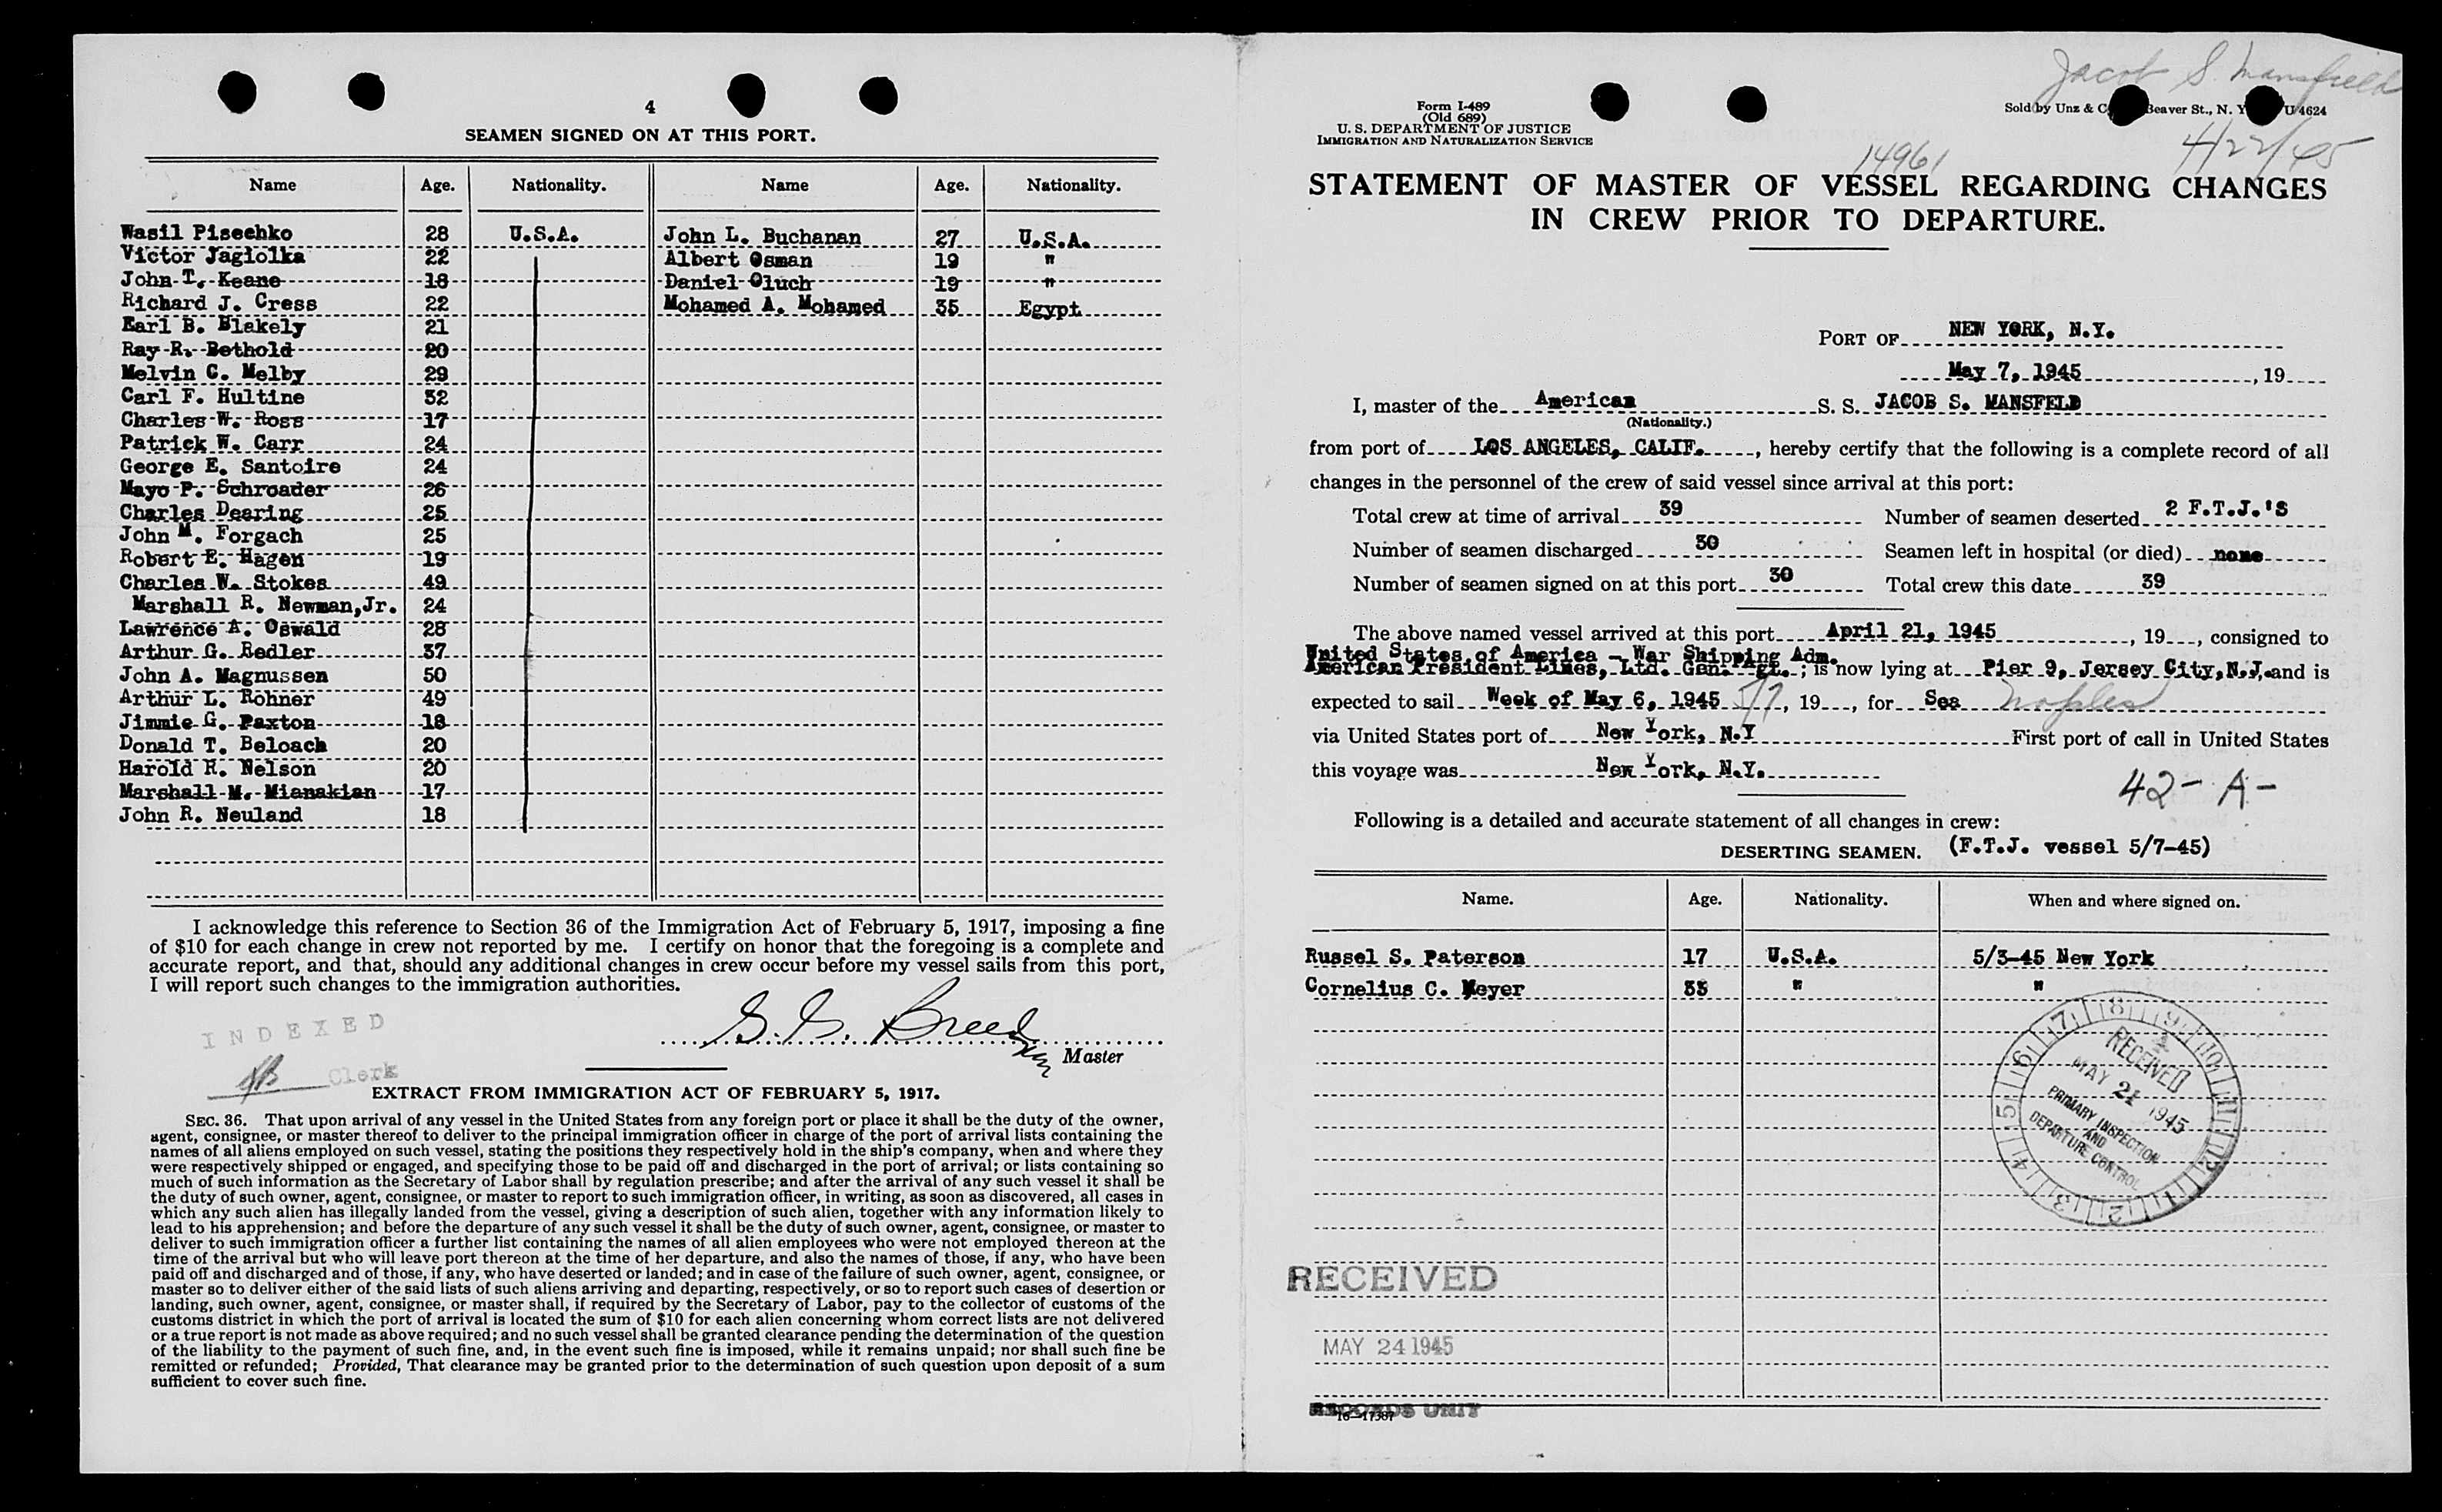 4
SEAMEN SIGNED ON AT THIS PORT.
Name Age. Nationality. Name Age. Nationality.
Wasil Piseehko 28 U.S.A. John L. Buchanan 27 U.S.A.
Victor Jagiolka 22 Albert Osman 19 "
John T. Keane 18 Daniel Oluch 19 "
Richard J. Cress 22 Mohamed A. Mohamed 35 Egypt
Earl B. Blakely 21
Ray R. Bethold 20
Melvin C. Melby 29
Carl F. Hultine 32
Charles W. Ross 17
Patrick W. Carr 24
George E. Santoire 24
Mayo P. Schroader 26
Charles Dearing 25
John M. Forgach 25
Robert E. Hagen 19
Charles W. Stokes 49
Marshall R. Newman,Jr. 24
Lawrence A. Oswald 28
Arthur G. Redler 37
John A. Magnussen 50
Arthur L. Rohner 49
Jimmie G. Paxton 18
Donald T. Beloach 20
Harold R. Nelson 20
Marshall M. Mianakian 17
John R. Neuland 18
I acknowledge this reference to Section 36 of the Immigration Act of February 5, 1917, imposing a fine
of $10 for each change in crew not reported by me. I certify on honor that the foregoing is a complete and
accurate report, and that, should any additional changes in crew occur before my vessel sails from this port,
I will report such changes to the immigration authorities.
INDEXED
Clerk
Breed
Master
EXTRACT FROM IMMIGRATION ACT OF FEBRUARY 5, 1917.
SEC. 36. That upon arrival of any vessel in the United States from any foreign port or place it shall be the duty of the owner,
agent, consignee, or master thereof to deliver to the principal immigration officer in charge of the port of arrival lists containing the
names of all aliens employed on such vessel, stating the positions they respectively hold in the ship's company, when and where they
were respectively shipped or engaged, and specifying those to be paid off and discharged in the port of arrival; or lists containing so
much of such information as the Secretary of Labor shall by regulation prescribe; and after the arrival of any such vessel it shall be
the duty of such owner, agent, consignee, or master to report to such immigration officer, in writing, as soon as discovered, all cases in
which any such alien has illegally landed from the vessel, giving a description of such alien, together with any information likely to
lead to his apprehension; and before the departure of any such vessel it shall be the duty of such owner, agent, consignee, or master to
deliver to such immigration officer a further list containing the names of all alien employees who were not employed thereon at the
time of the arrival but who will leave port thereon at the time of her departure, and also the names of those, if any, who have been
paid off and discharged and of those, if any, who have deserted or landed; and in case of the failure of such owner, agent, consignee, or
master so to deliver either of the said lists of such aliens arriving and departing, respectively, or so to report such cases of desertion or
landing, such owner, agent, consignee, or master shall, if required by the Secretary of Labor, pay to the collector of customs of the
customs district in which the port of arrival is located the sum of $10 for each alien concerning whom correct lists are not delivered
or a true report is not made as above required; and no such vessel shall be granted clearance pending the determination of the question
of the liability to the payment of such fine, and, in the event such fine is imposed, while it remains unpaid; nor shall such fine be
remitted or refunded; Provided, That clearance may be granted prior to the determination of such question upon deposit of a sum
sufficient to cover such fine.
Jacob S. Mansfield
Form I-489
(Old 689)
U. S. DEPARTMENT OF JUSTICE
IMMIGRATION AND NATURALIZATION SERVICE
Sold by Unz & C Beaver St., N. Y U 4624
4/22/45
14961
STATEMENT OF MASTER OF VESSEL REGARDING CHANGES
IN CREW PRIOR TO DEPARTURE.
PORT OF NEW YORK, N.Y.
May 7, 1945, 19
I, master of the American S. S. JACOB S. MANSFELD
(Nationality.)
from port of LOS ANGELES, CALIF., hereby certify that the following is a complete record of all
changes in the personnel of the crew of said vessel since arrival at this port:
Total crew at time of arrival 39 Number of seamen deserted 2 F.T.J.'S
Number of seamen discharged 30 Seamen left in hospital (or died) none
Number of seamen signed on at this port 30 Total crew this date 39
The above named vessel arrived at this port April 21, 1945, 19, consigned to
United States of America - War Shipping Adm.
American President Lines, Ltd. Gen. Agt.; is now lying at Pier 9, Jersey City, N.J. and is
expected to sail Week of May 6, 1945 5/7, 19, for Sea Naples
via United States port of New York, N.Y First port of call in United States
this voyage was New York, N.Y.
42-A-
Following is a detailed and accurate statement of all changes in crew:
DESERTING SEAMEN. (F.T.J. vessel 5/7-45)
Name. Age. Nationality. When and where signed on.
Russel S. Paterson 17 U.S.A. 5/3-45 New York
Cornelius C. Meyer 33 " "
7 8 9 10 11 12 1 2 3 4 5 6
RECEIVED
MAY 21 1945
PRIMARY INSPECTION
AND
DEPARTURE CONTROL
RECEIVED
MAY 24 1945
RECORDS UNIT
16-17387